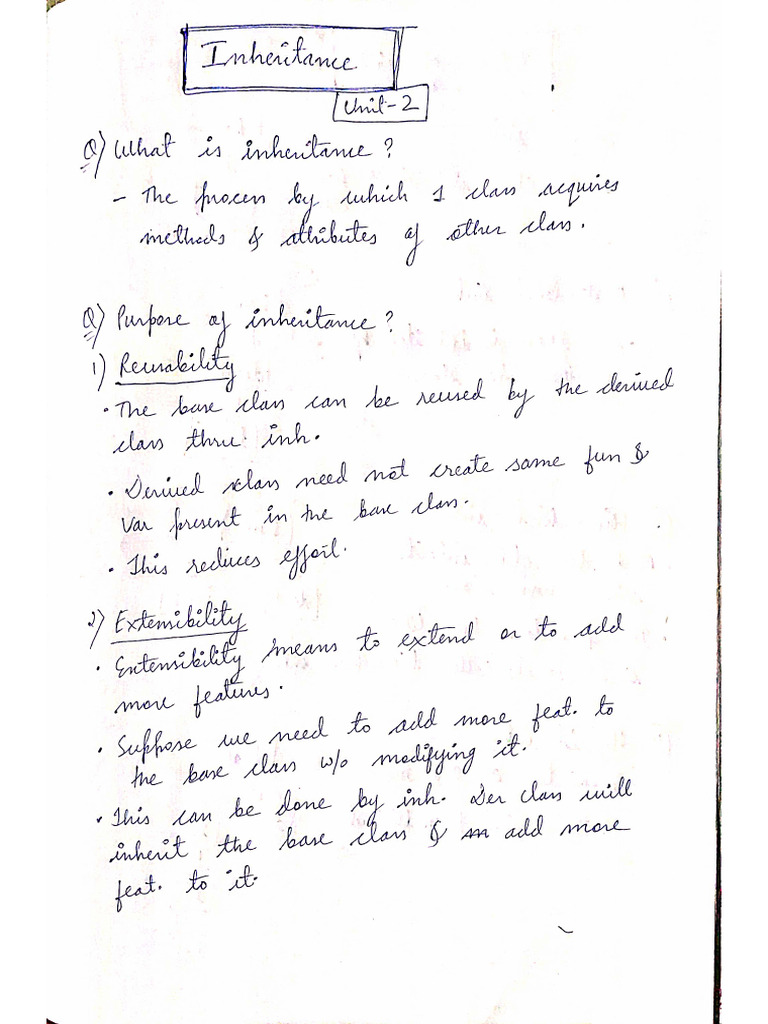 Inheritance
Unit-2
Q) What is inheritance?
- The process by which 1 class acquires
methods & attributes of other class.
Q) Purpose of inheritance?
1) Reusability
• The base class can be reused by the derived
class thru inh.
• Derived class need not create same fun &
var present in the base class.
• This reduces effort.
2) Extensibility
• Extensibility means to extend or to add
more features.
• Suppose we need to add more feat. to
the base class w/o modifying it.
• This can be done by inh. Der class will
inherit the base class & add more
feat. to it.